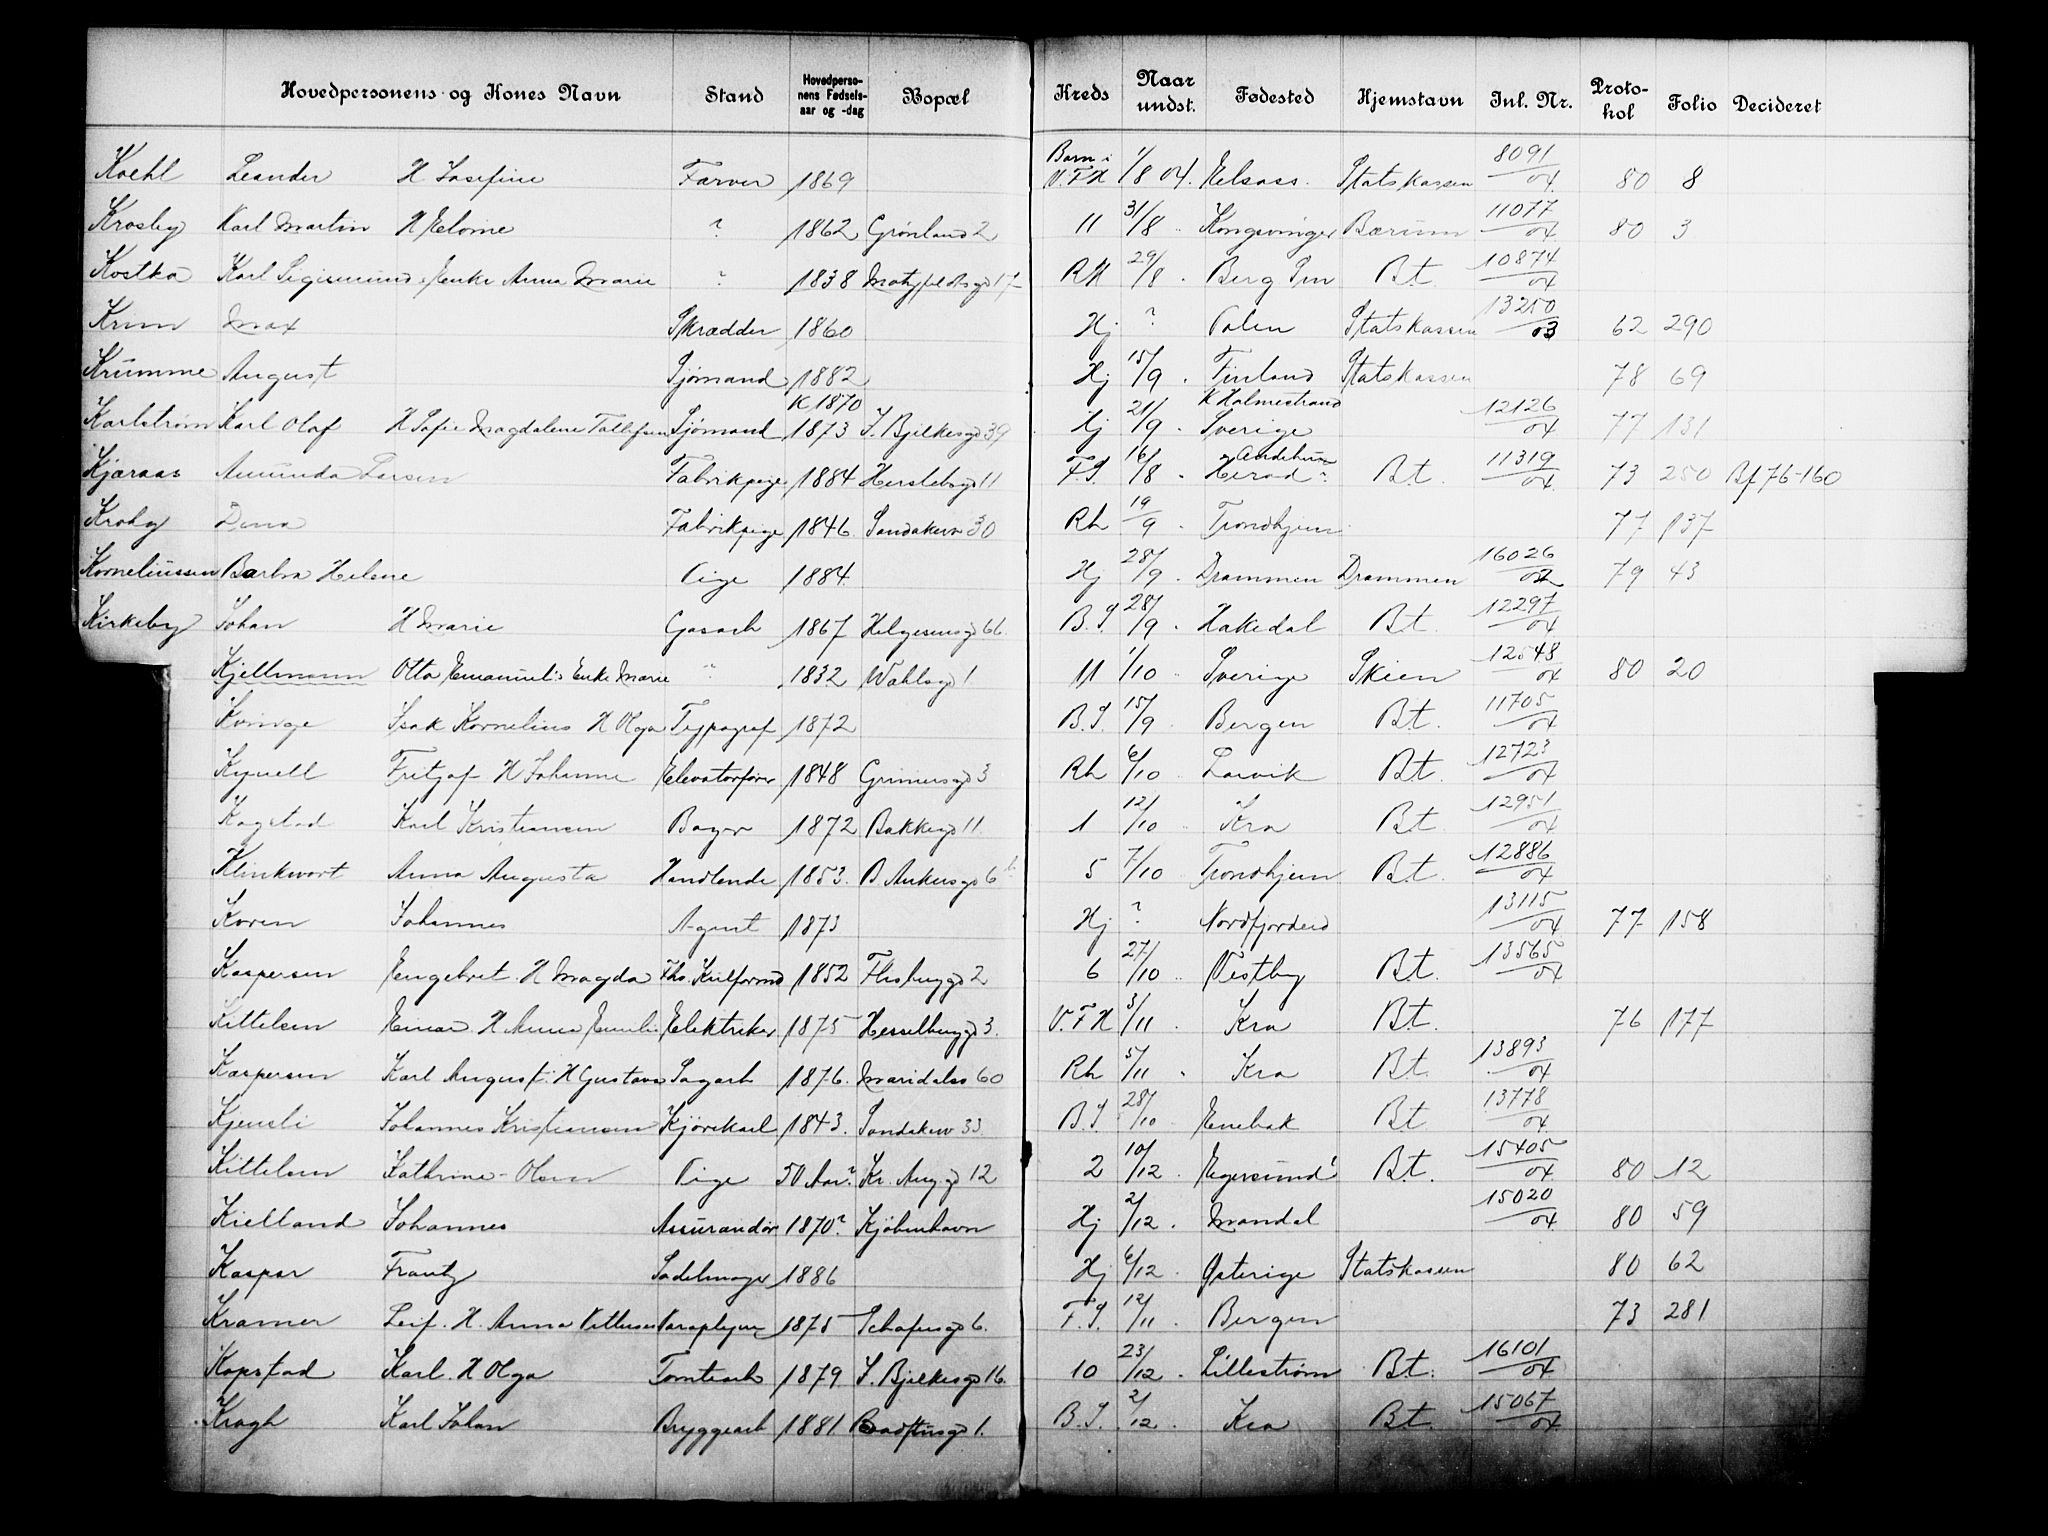 Hovedpersonens og Kones Navn Stand Hovedpersonens Fødselsaar og -dag Bopæl Kreds Naar undst. Fødested Hjemstavn Inl. Nr. Protokol Folio Decideret
Koehl Leander H Josefine Farver 1869 Barn i V.F.H 1/8 04. Elsass. Statskassen 8091/04 80 8
Krosby Karl Martin H Elvine ? 1862 Grønland 2 11 31/8 " Kongsvinger Bærum 11077/04 80 3
Kostka Karl Sigismund: Enke Anna Marie " 1838 17 RH 29/8 . Berg Bt. 10874/04
Krum Max Skrædder 1860 Hj ? Polen Statskassen 13250/03 62 290
Krumme August Sjømand 1882 Hj 15/9 . Finland Statskassen 78 69
Karlstrøm Karl Olaf H Sofie Magdalene Tollefsen Sjømand K 1870 1873 J. Bjelkesgd 39 Hj 21/9 . K Holmestrand Sverige 12126/04 77 131
Kjæraas Amunda Larsen Fabrikpige 1884 Herslebsgd 11 F.S. 16/8 . Andebu Herad? Bt. 11319/04 73 250 Bf 76-160
Krohg Dina Fabrikpige 1846 Sandakerv 30 Rh 19/9 . Trondhjem 77 137
Korneliussen Barbra Helene Pige 1884 Hj 28/9 . Drammen Drammen 16026/02 79 43
Kirkeby Johan H Marie Gasarb 1867 Helgesensgd 66 B.S. 28/9 . Hakedal Bt. 12297/04
Kjellmann Otto Emanuel: Enke Marie " 1832 Wahlsgd 1 11 1/10 . Sverige Skien 12548/04 80 20
Kvinge Isak Kornelius H Olga Typograf 1872 B.S. 15/9 . Bergen Bt. 11705/04
Kynell Fritjof H Johanne Elevatorfører 1848 Grünersgd 3 Rh 6/10 . Larvik Bt. 12723/04
Kagstad Karl Kristiansen Bager 1872 Bakkegd 11. 1 12/10 " Kra Bt. 12951/04
Klinkwort Anna Augusta Handlende 1853. B Ankersgd 6 b 5 7/10 Trondhjem Bt. 12886/04
Koren Johannes Agent 1873 Hj ? Nordfjordeid 13115/04 77 158
Kaspersen Engebret. H Magda Fhs. Kulformd 1852 Flisbyggd 2 6 27/10 " Vestby Bt. 13565/04
Kittelsen Einar H Anna Emilie Elektriker 1875 Hesselbergd 3. V.F.H 3/11 . Kra Bt. 76 177
Kaspersen Karl August: H Gustava Sagarb 1876. Maridalsv 60 Rh 5/11 . Kra Bt. 13893/04
Kjensli Johannes Kristiansen Kjørekarl 1843. Sandakerv 33. B.S 28/10 . Enebak Bt 13778/04
Kittelsen Kathrine - Olsen Pige 50 Aar? Kr. Aug. gd 12 2 10/12 . Egersund! Bt. 15405/04 80 12
Kielland Johannes Assurandør 1870? Kjøbenhavn Hj 2/12 . Mandal 15020/04 80 59
Kaspar Frantz Sadelmager 1886 Hj 6/12 . Østerige Statskassen 80 62
Kramer Leif. H. Anna 1875 Schafersgd 6. F.S. 12/11 . Bergen 73 281
Kopstad Karl. H Olga Tomtearb 1879 J. Bjelkesgd 16. 10 23/12 . Lillestrøm Bt. 16101/04
Krogh Karl Johan Bryggearb 1881 1. B.S. 2/12 . Kra Bt. 15067/04